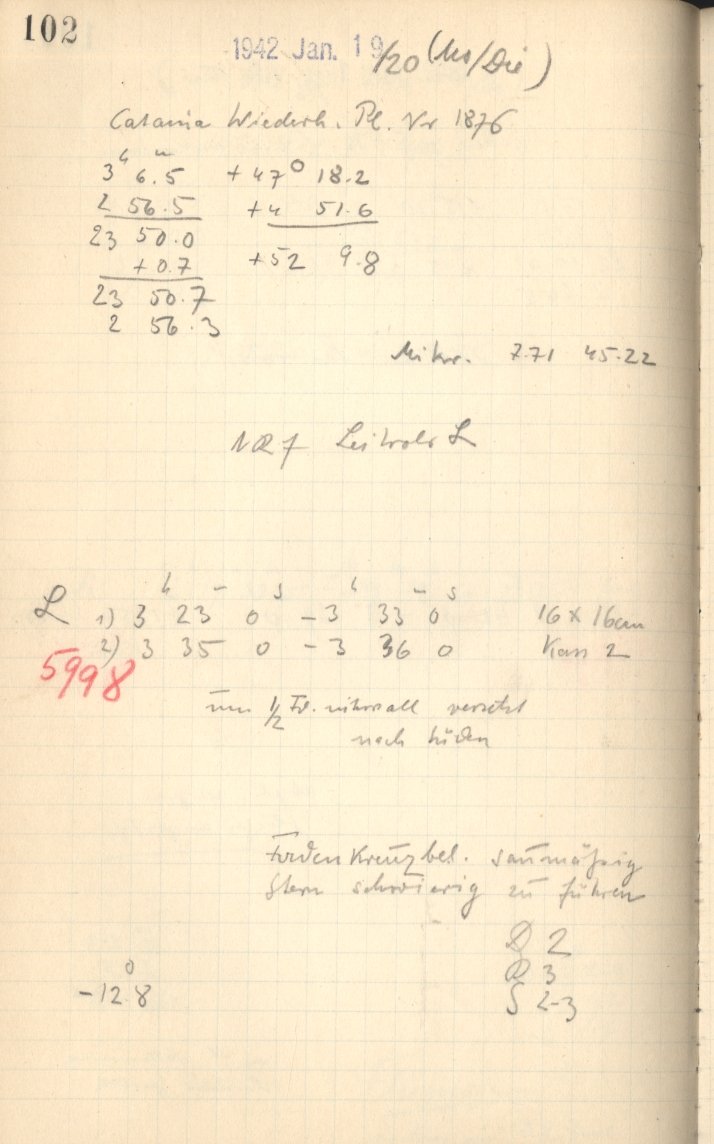 102
1942 Jan. 19/20 (Mo/Die)
Catania Wiederh. Pl. Nr 1876
3h 6m.5 +47° 18.2
2 56.5 +4 51.6
23 50.0
+0.7 +52 9.8
23 50.7
2 56.3
Mikr. 7.71 45.22
Leitrohr L
h m s h m s
L 1) 3 23 0 – 3 33 0 16 x 16cm
2) 3 35 0 – 3 36 0 Kass 2
5998
um 1/2 Fd. intervall versetzt
nach Süden
Fadenkreuzbel. saumäßig
Stern schwierig zu führen
D 2
R 3
-12°.8 S 2-3